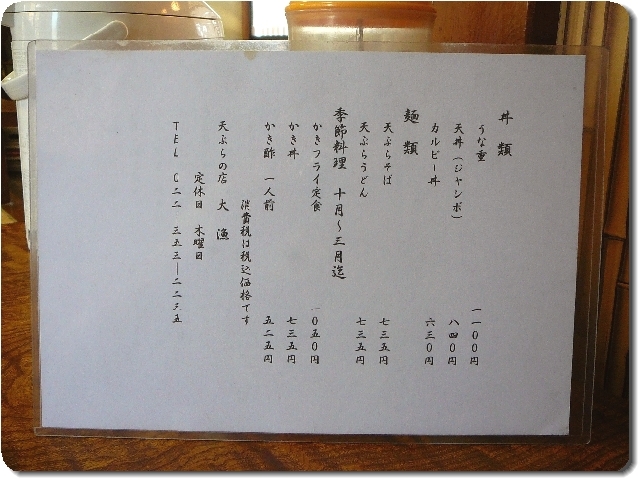 丼類
うな重 一一〇〇円
天丼(ジャンボ) 八四〇円
カルビー丼 六三〇円
麺類
天ぷらそば 七三五円
天ぷらうどん 七三五円
季節料理 十月〜三月迄
かきフライ定食 一〇五〇円
かき丼 七三五円
かき酢 一人前 五二五円
消費税は税込価格です
天ぷらの店 大漁
定休日 木曜日